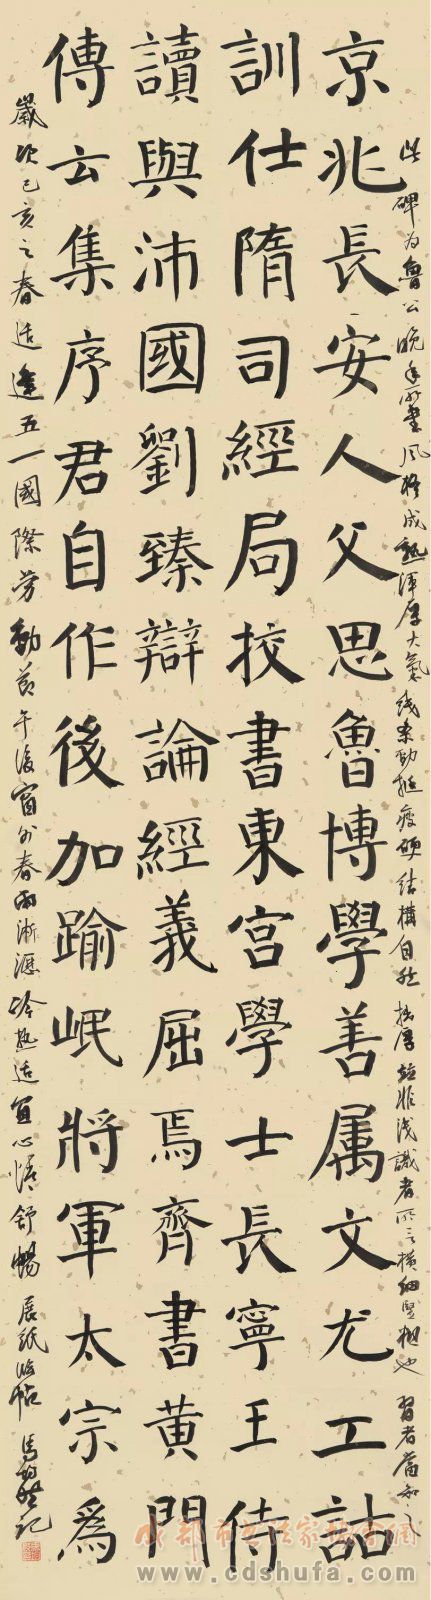 此碑为魯公晚年所書風格成熟渾厚大氣线条勁挺瘦硬结構自然拙厚並非浅識者所言横細竖粗也習者當知之
京兆長安人父思魯博學善属文尤工詁
訓仕隋司經局挍書東宮學士長寧王侍
讀與沛國劉臻辯論經義屈焉齊書黃門
傳云集序君自作後加踰岷將軍太宗爲
歲次己亥之春适逢五一國際劳動节午後窗外春雨淅瀝冷熱适宜心情舒暢展紙临帖馬記
成都市书法家协会网
www.cdshufa.com